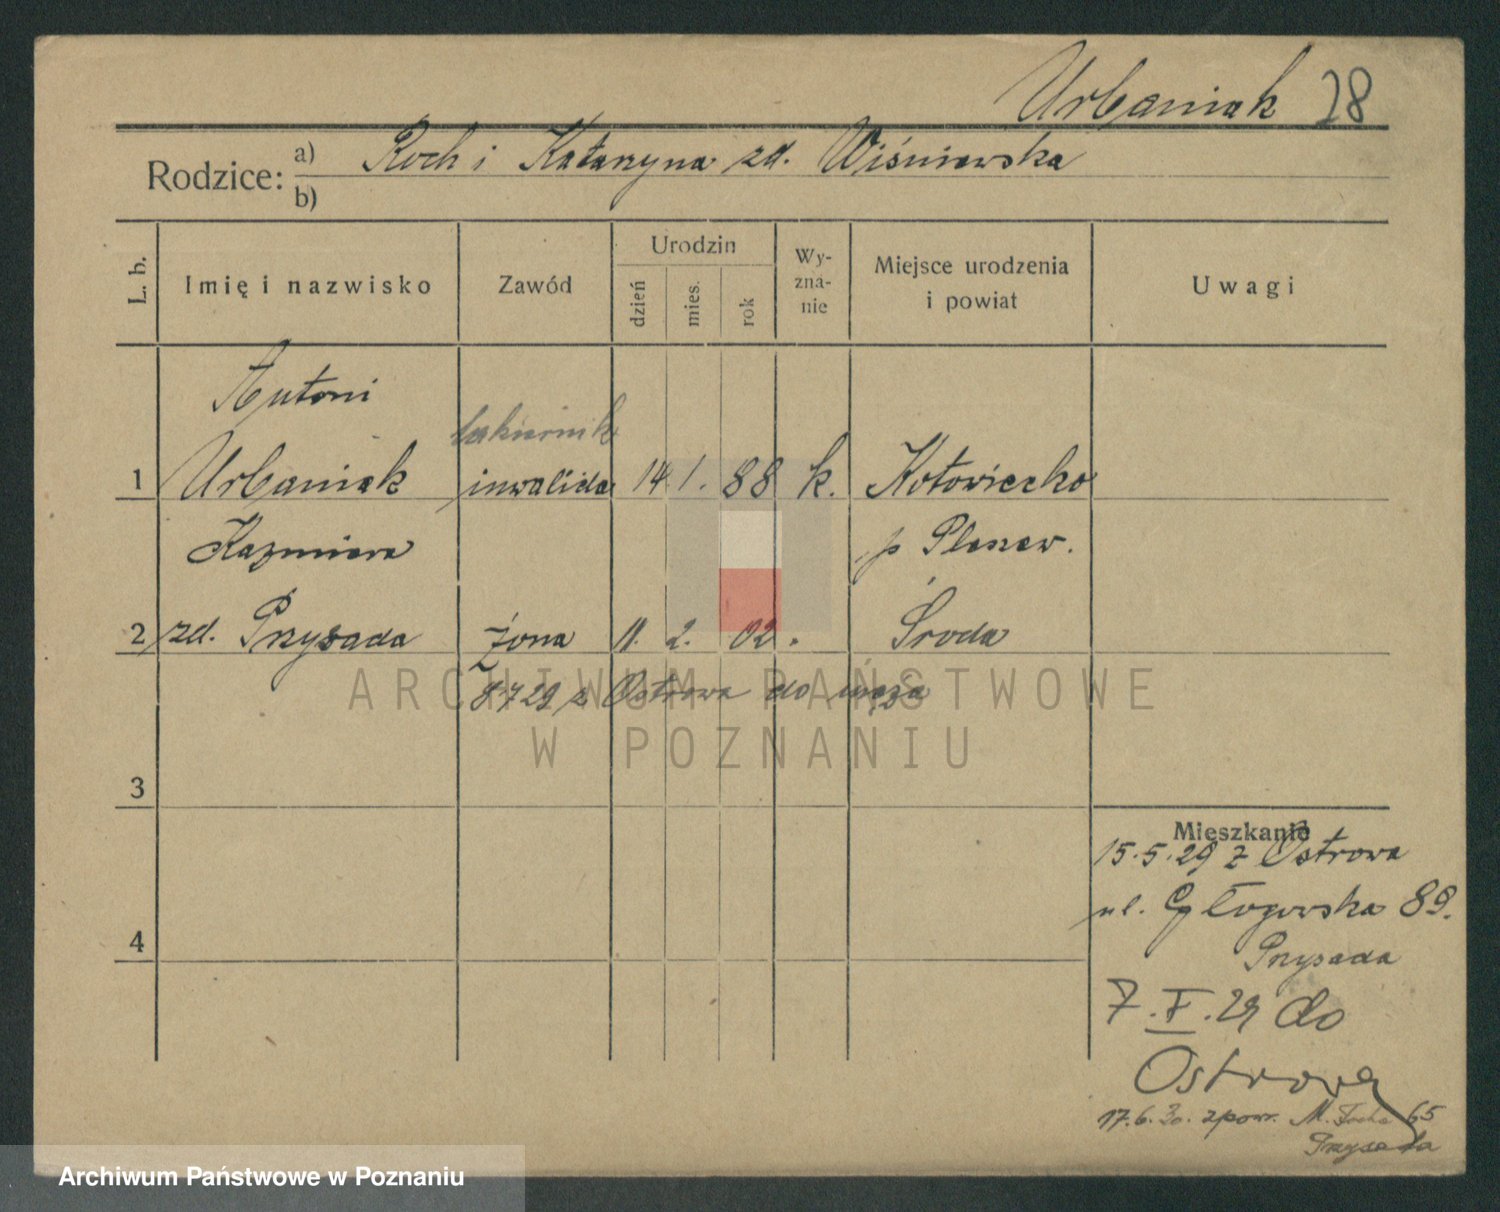 Urbaniak 28
Rodzice: a) Roch i Katarzyna zd. Wiśniewska
b)
L. b. Imię i nazwisko Zawód Urodzin dzień mies. rok Wy-zna-nie Miejsce urodzenia i powiat Uwagi
Antoni
lakiernik
1 Urbaniak inwalida 14 1. 88 k. Kotowiecko
Kazmiera p Pleszew.
2 zd. Przysada żona 11. 2. 02. Środa
8729 z Ostrowa do męża
ARCHIWUM PAŃSTWOWE
W POZNANIU
3
Mieszkanie
15.5.29 z Ostrowa
ul. Głogowska 89.
Przysada
4
7.X.29 do
Ostrowa
17.6.30. zpowr. M. Focha 65
Przysada
Archiwum Państwowe w Poznaniu